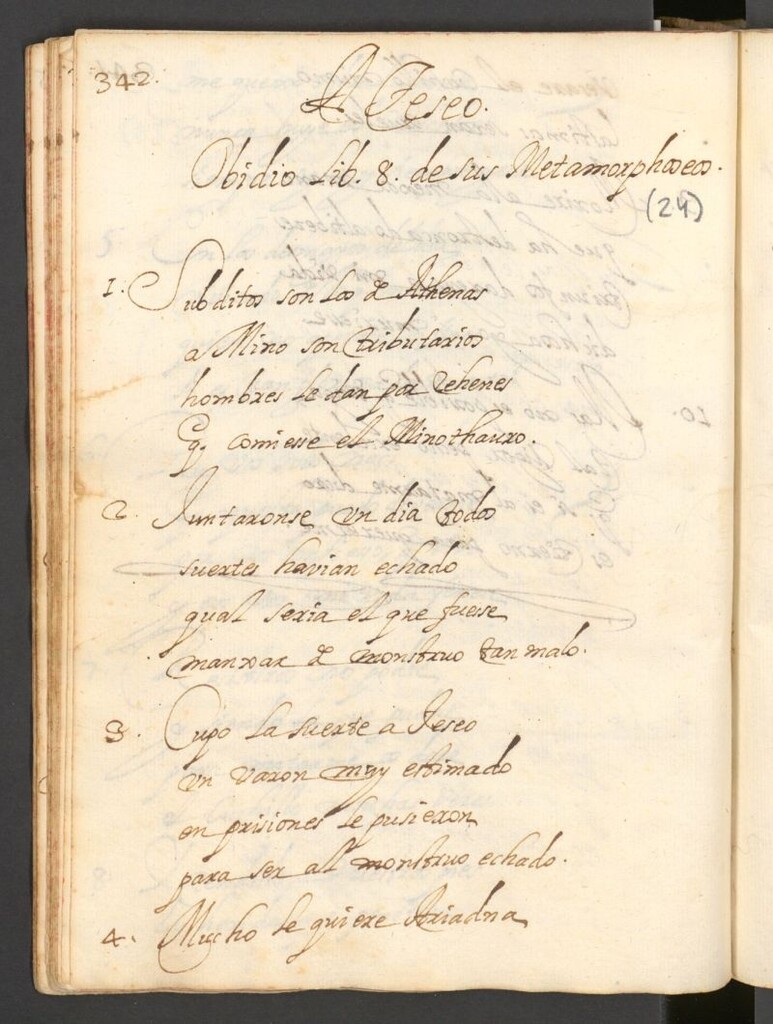 342.
A Teseo.
Obidio Lib. 8. de sus Metamorphoseos.
(24)
1. Subditos son los de Athenas
a Mino son tributarios
hombres le dan por rehenes
q. comiesse el Minothauro.
2. Juntaronse un dia todos
suertes havian echado
qual seria el que fuese
manxar de monstruo tan malo.
3. Cupo la suerte a Teseo
un varon muy estimado
en prisiones le pusieron
para ser all monstruo echado.
4. Mucho le quiere Ariadna